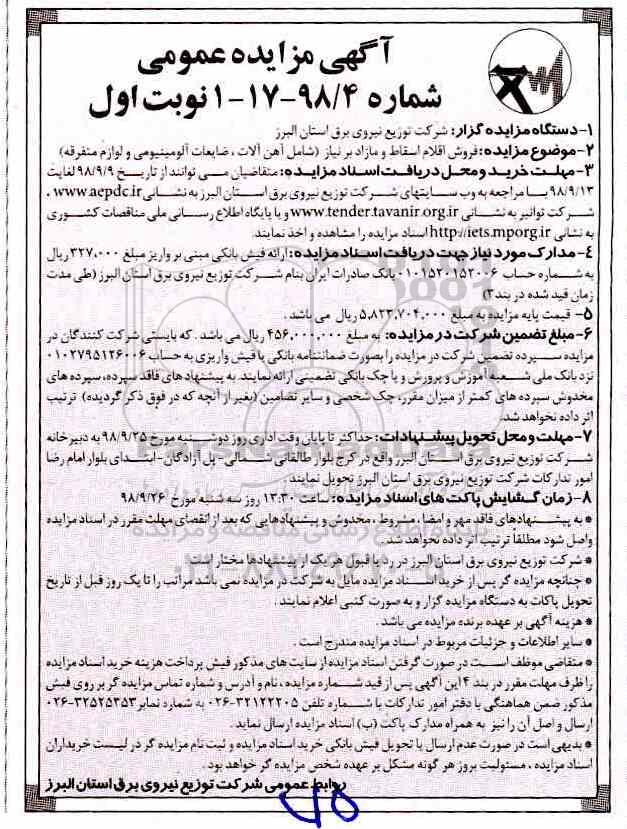 آگهی مزایده عمومی
شماره ۹۸/۴-۱۷-۱ نوبت اول
۱- دستگاه مزایده گزار: شرکت توزیع نیروی برق استان البرز
۲-موضوع مزایده: فروش اقلام اسقاط و مازاد بر نیاز (شامل آهن آلات ، ضایعات آلومینیومی و لوازم متفرقه)
۳- مهلت خرید و محل دریافت اسناد مزایده : متقاضیان می توانند از تاریخ ۹۸/۹/۹ لغایت
۹۸/۹/۱۳ با مراجعه به وب سایتهای شرکت توزیع نیروی برق استان البرز به نشانی www.aepdc.ir ،
شرکت توانیر به نشانی www.tender.tavanir.org.ir و یا پایگاه اطلاع رسانی ملی مناقصات کشوری
به نشانی http://iets.mporg.ir اسناد مزایده را مشاهده و اخذ نمایند.
۴- مدارک مورد نیاز جهت دریافت اسناد مزایده : ارائه فیش بانکی مبنی بر واریز مبلغ ۳۲۷،۰۰۰ ریال
به شماره حساب ۰۱۰۱۵۲۰۱۵۲۰۰۶ بانک صادرات ایران بنام شرکت توزیع نیروی برق استان البرز (طی مدت
زمان قید شده در بند ۳)
۵- قیمت پایه مزایده به مبلغ ۵،۸۲۳،۷۰۴،۰۰۰ ریال می باشد .
۶- مبلغ تضمین شرکت در مزایده: به مبلغ ۴۵۶،۰۰۰،۰۰۰ ریال می باشد . که بایستی شرکت کنندگان در
مزایده سپرده تضمین شرکت در مزایده را بصورت ضمانتنامه بانکی یا فیش واریزی به حساب ۰۱۰۲۷۹۵۱۲۶۰۰۶
نزد بانک ملی شعبه آموزش و پرورش و یا چک بانکی تضمینی ارائه نمایند. به پیشنهادهای فاقد سپرده، سپرده های
مخدوش سپرده های کمتر از میزان مقرر، چک شخصی و سایر تضامین (بغیر از آنچه که در فوق ذکر گردیده) ترتیب
اثر داده نخواهد شد.
۷- مهلت و محل تحویل پیشنهادات: حداکثر تا پایان وقت اداری روز دوشنبه مورخ ۹۸/۹/۲۵ به دبیرخانه
شرکت توزیع نیروی برق استان البرز واقع در کرج بلوار طالقانی شمالی- پل آزادگان- ابتدای بلوار امام رضا
امور تدارکات شرکت توزیع نیروی برق استان البرز تحویل نمایند .
۸- زمان گشایش پاکت های اسناد مزایده: ساعت ۱۳:۳۰ روز سه شنبه مورخ ۹۸/۹/۲۶
* به پیشنهادهای فاقد مهر و امضا ، مشروط ، مخدوش و پیشنهادهایی که بعد از انقضای مهلت مقرر در اسناد مزایده
واصل شود مطلقا ترتیب اثر داده نخواهد شد.
* شرکت توزیع نیروی برق استان البرز در رد یا قبول هر یک از پیشنهادها مختار است
* چنانچه مزایده گر پس از خرید اسناد مزایده مایل به شرکت در مزایده نمی باشد مراتب را تا یک روز قبل از تاریخ
تحویل پاکات به دستگاه مزایده گزار و به صورت کتبی اعلام نمایند .
* هزینه آگهی بر عهده برنده مزایده می باشد .
* سایر اطلاعات و جزئیات مربوط در اسناد مزایده مندرج است .
* متقاضی موظف است در صورت گرفتن اسناد مزایده از سایت های مذکور فیش پرداخت هزینه خرید اسناد مزایده
را ظرف مهلت مقرر در بند ۴ این آگهی پس از قید شماره مزایده ، نام و آدرس و شماره تماس مزایده گر بر روی فیش
مذکور ضمن هماهنگی با دفتر امور تدارکات با شماره تلفن ۳۲۱۲۲۲۰۵-۰۲۶ به شماره نمابر ۳۲۵۲۵۳۵۳-۰۲۶
ارسال و اصل آن را نیز به همراه مدارک پاکت (ب) اسناد مزایده ارسال نماید .
* بدیهی است در صورت عدم ارسال یا تحویل فیش بانکی خرید اسناد مزایده و ثبت نام مزایده گر در لیست خریداران
اسناد مزایده ، مسئولیت بروز هر گونه مشکل بر عهده شخص مزایده گر خواهد بود .
روابط عمومی شرکت توزیع نیروی برق استان البرز
۷۵